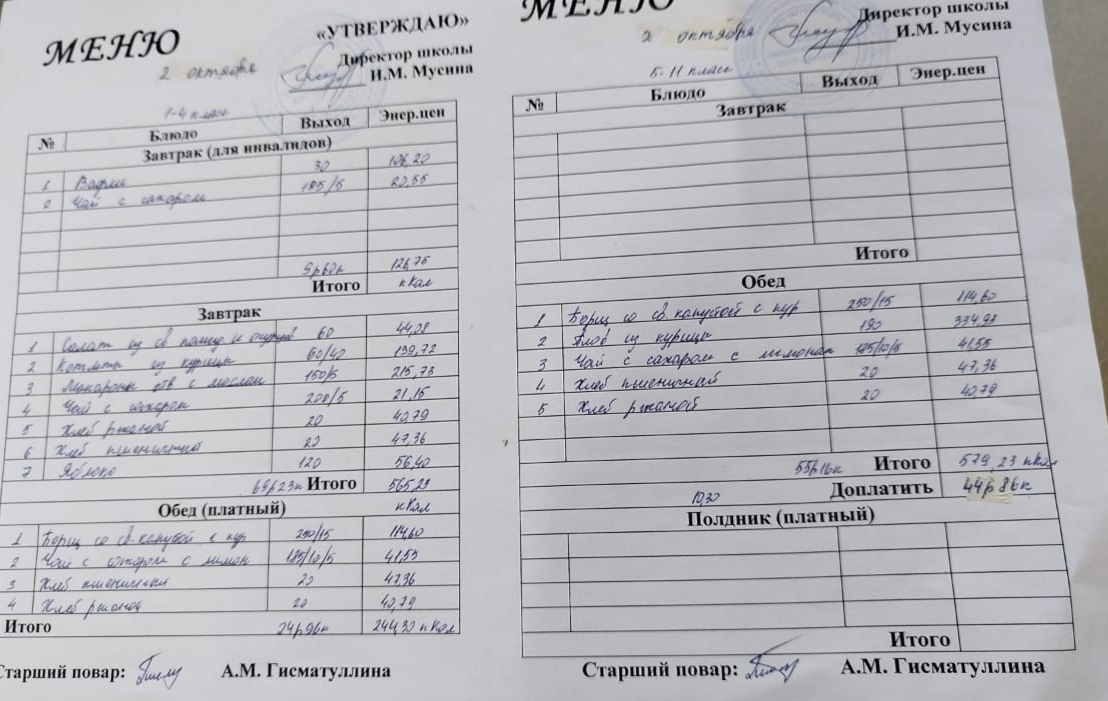 МЕНЮ
«УТВЕРЖДАЮ»
Директор школы
И.М. Мусина
2 октября
1-4 класс
№ Блюдо Выход Энер.цен
Завтрак (для инвалидов)
1 Вафли 30 106,20
2 Чай с сахаром 185/5 20,55
9р60к 126,75
Итого кКал
Завтрак
1 Салат из св помид и огурцов 60 44,28
2 Котлета из курицы 60/40 139,72
3 Макароны отв с маслом 150/5 215,73
4 Чай с сахаром 200/5 21,15
5 Хлеб ржаной 20 40,79
6 Хлеб пшеничный 20 47,36
7 Яблоко 120 56,40
69р23к Итого 565,29
кКал
Обед (платный)
1 Борщ со св.капустой с кур 250/15 114,60
2 Чай с сахаром с лимон 185/10/5 41,55
3 Хлеб пшеничный 20 47,36
4 Хлеб ржаной 20 40,79
Итого 24р96к 244,30 кКал
Старший повар: А.М. Гисматуллина
МЕНЮ
Директор школы
И.М. Мусина
2 октября
5-11 класс
№ Блюдо Выход Энер.цен
Завтрак
Итого
Обед
1 Борщ со св.капустой с кур 250/15 114,60
2 Плов из курицы 190 334,93
3 Чай с сахаром с лимоном 185/10/5 41,55
4 Хлеб пшеничный 20 47,36
5 Хлеб ржаной 20 40,79
55р16к Итого 579,23 кКал
10,30 Доплатить 44р86к
Полдник (платный)
Итого
Старший повар: А.М. Гисматуллина